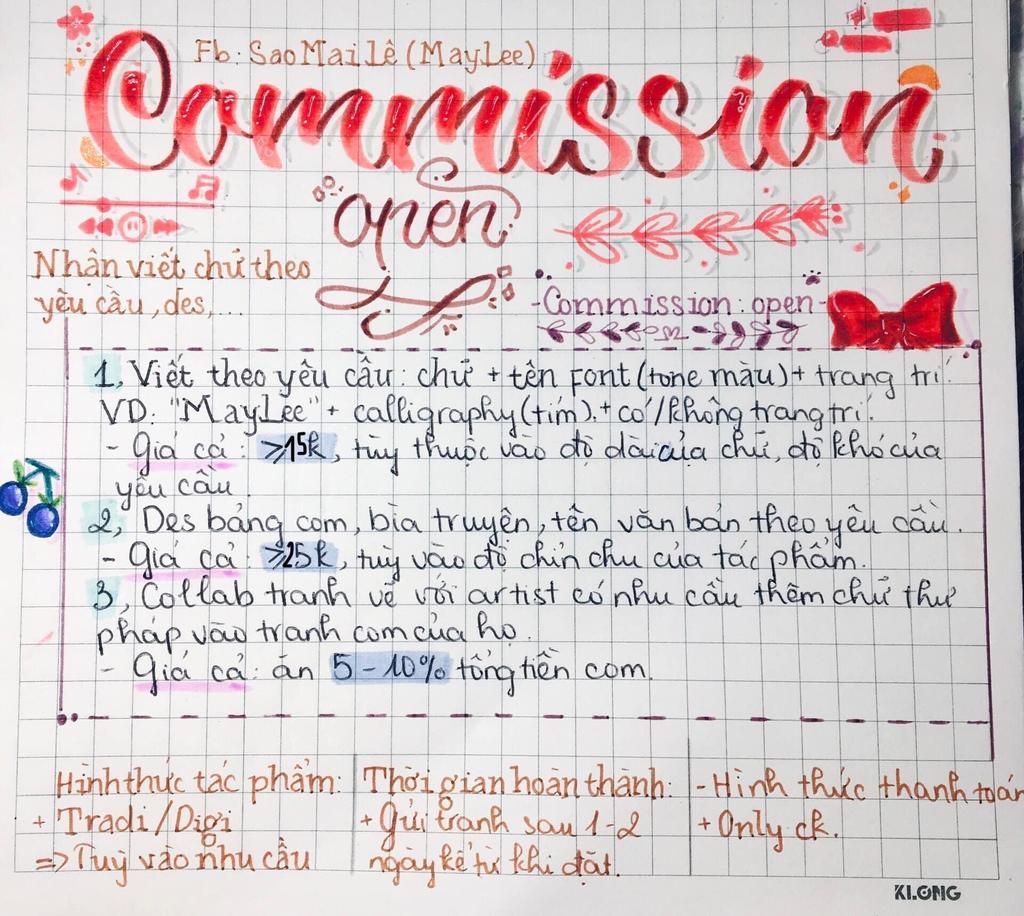 Fb: Sao Mai Lê (MayLee)
Commission
open
Nhận viết chữ theo
yêu cầu, des,...
-Commission: open-
1, Viết theo yêu cầu: chữ + tên Font (tone màu) + trang trí.
VD: "MayLee" + calligraphy (tím). + có/không trang trí.
- Giá cả: ≥15k, tùy thuộc vào độ dài của chữ, độ khó của
yêu cầu.
2, Des bảng com, bìa truyện, tên văn bản theo yêu cầu.
- Giá cả: ≥25k, tùy vào độ chỉn chu của tác phẩm.
3, Collab tranh vẽ với artist có nhu cầu thêm chữ thư
pháp vào tranh com của họ.
- Giá cả: ăn 5-10% tổng tiền com.
Hình thức tác phẩm:
+ Tradi/Digi
=> Tuỳ vào nhu cầu
Thời gian hoàn thành:
+ Gửi tranh sau 1-2
ngày kể từ khi đặt.
- Hình thức thanh toán
+ Only ck.
KLONG